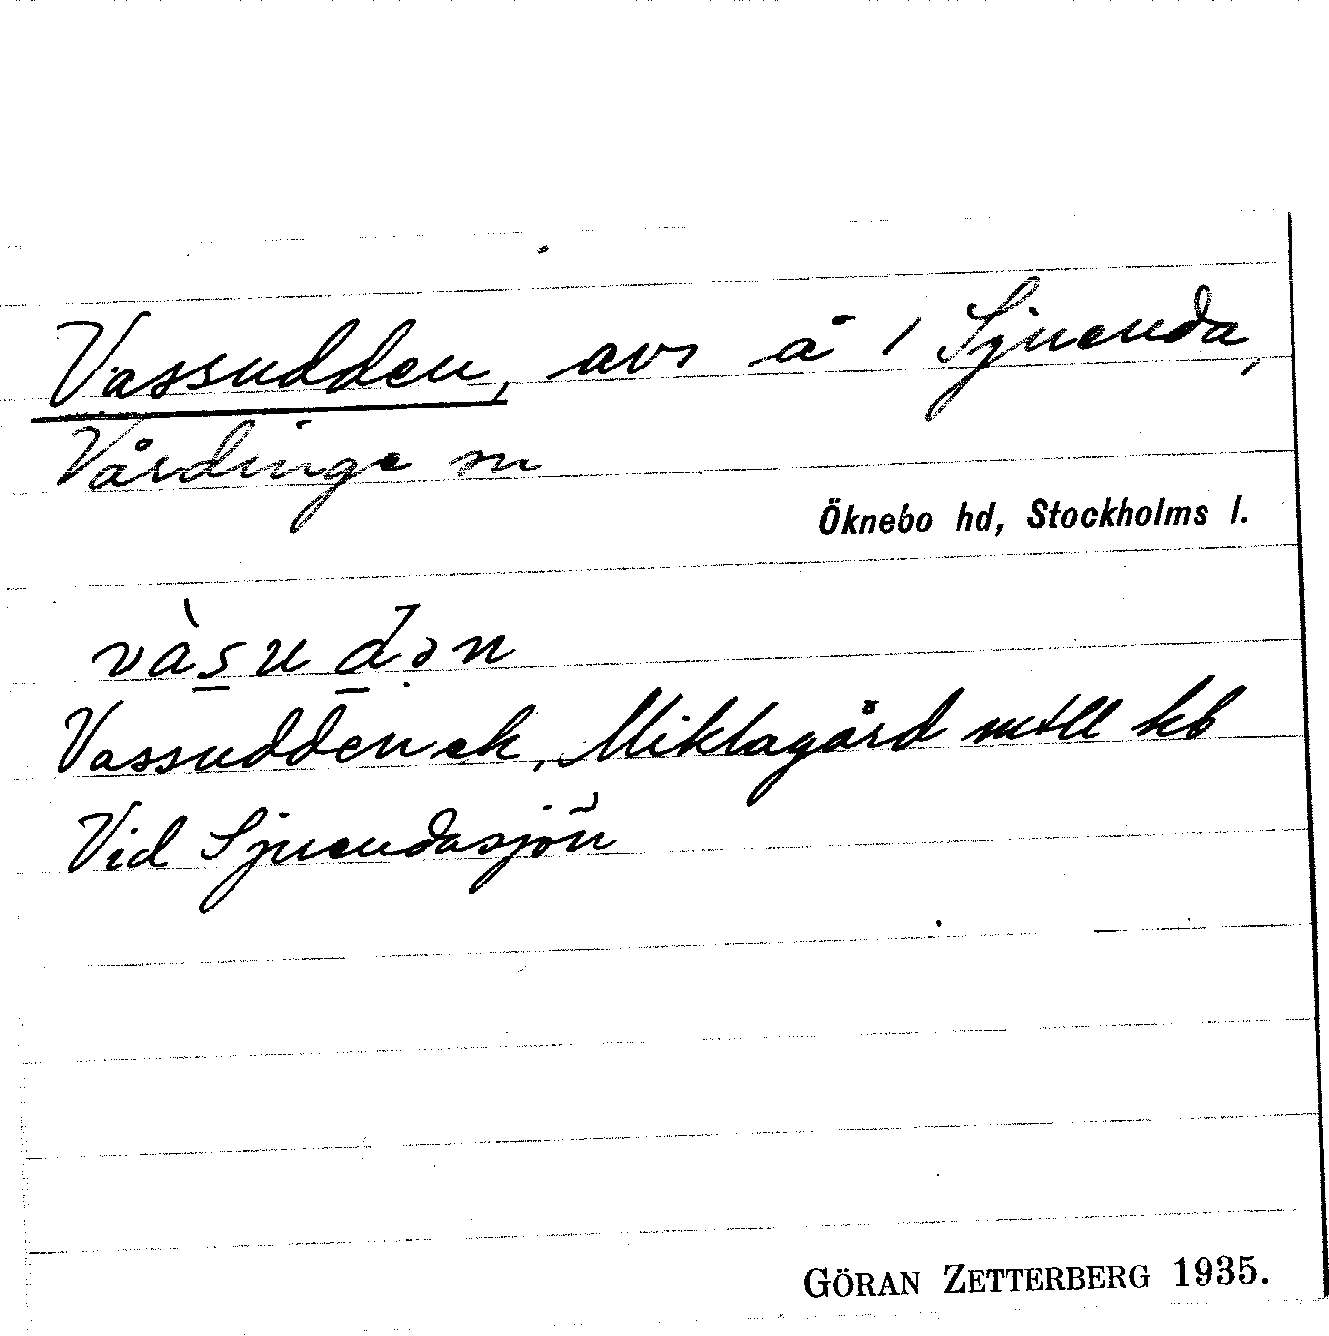 Vassudden, avs å 1 Sjuenda,
Vårdinge sn
Öknebo hd, Stockholms l.
vàsudən
Vassudden ek, Miklagård mtll kb
Vid Sjuendasjön
GÖRAN ZETTERBERG 1935.